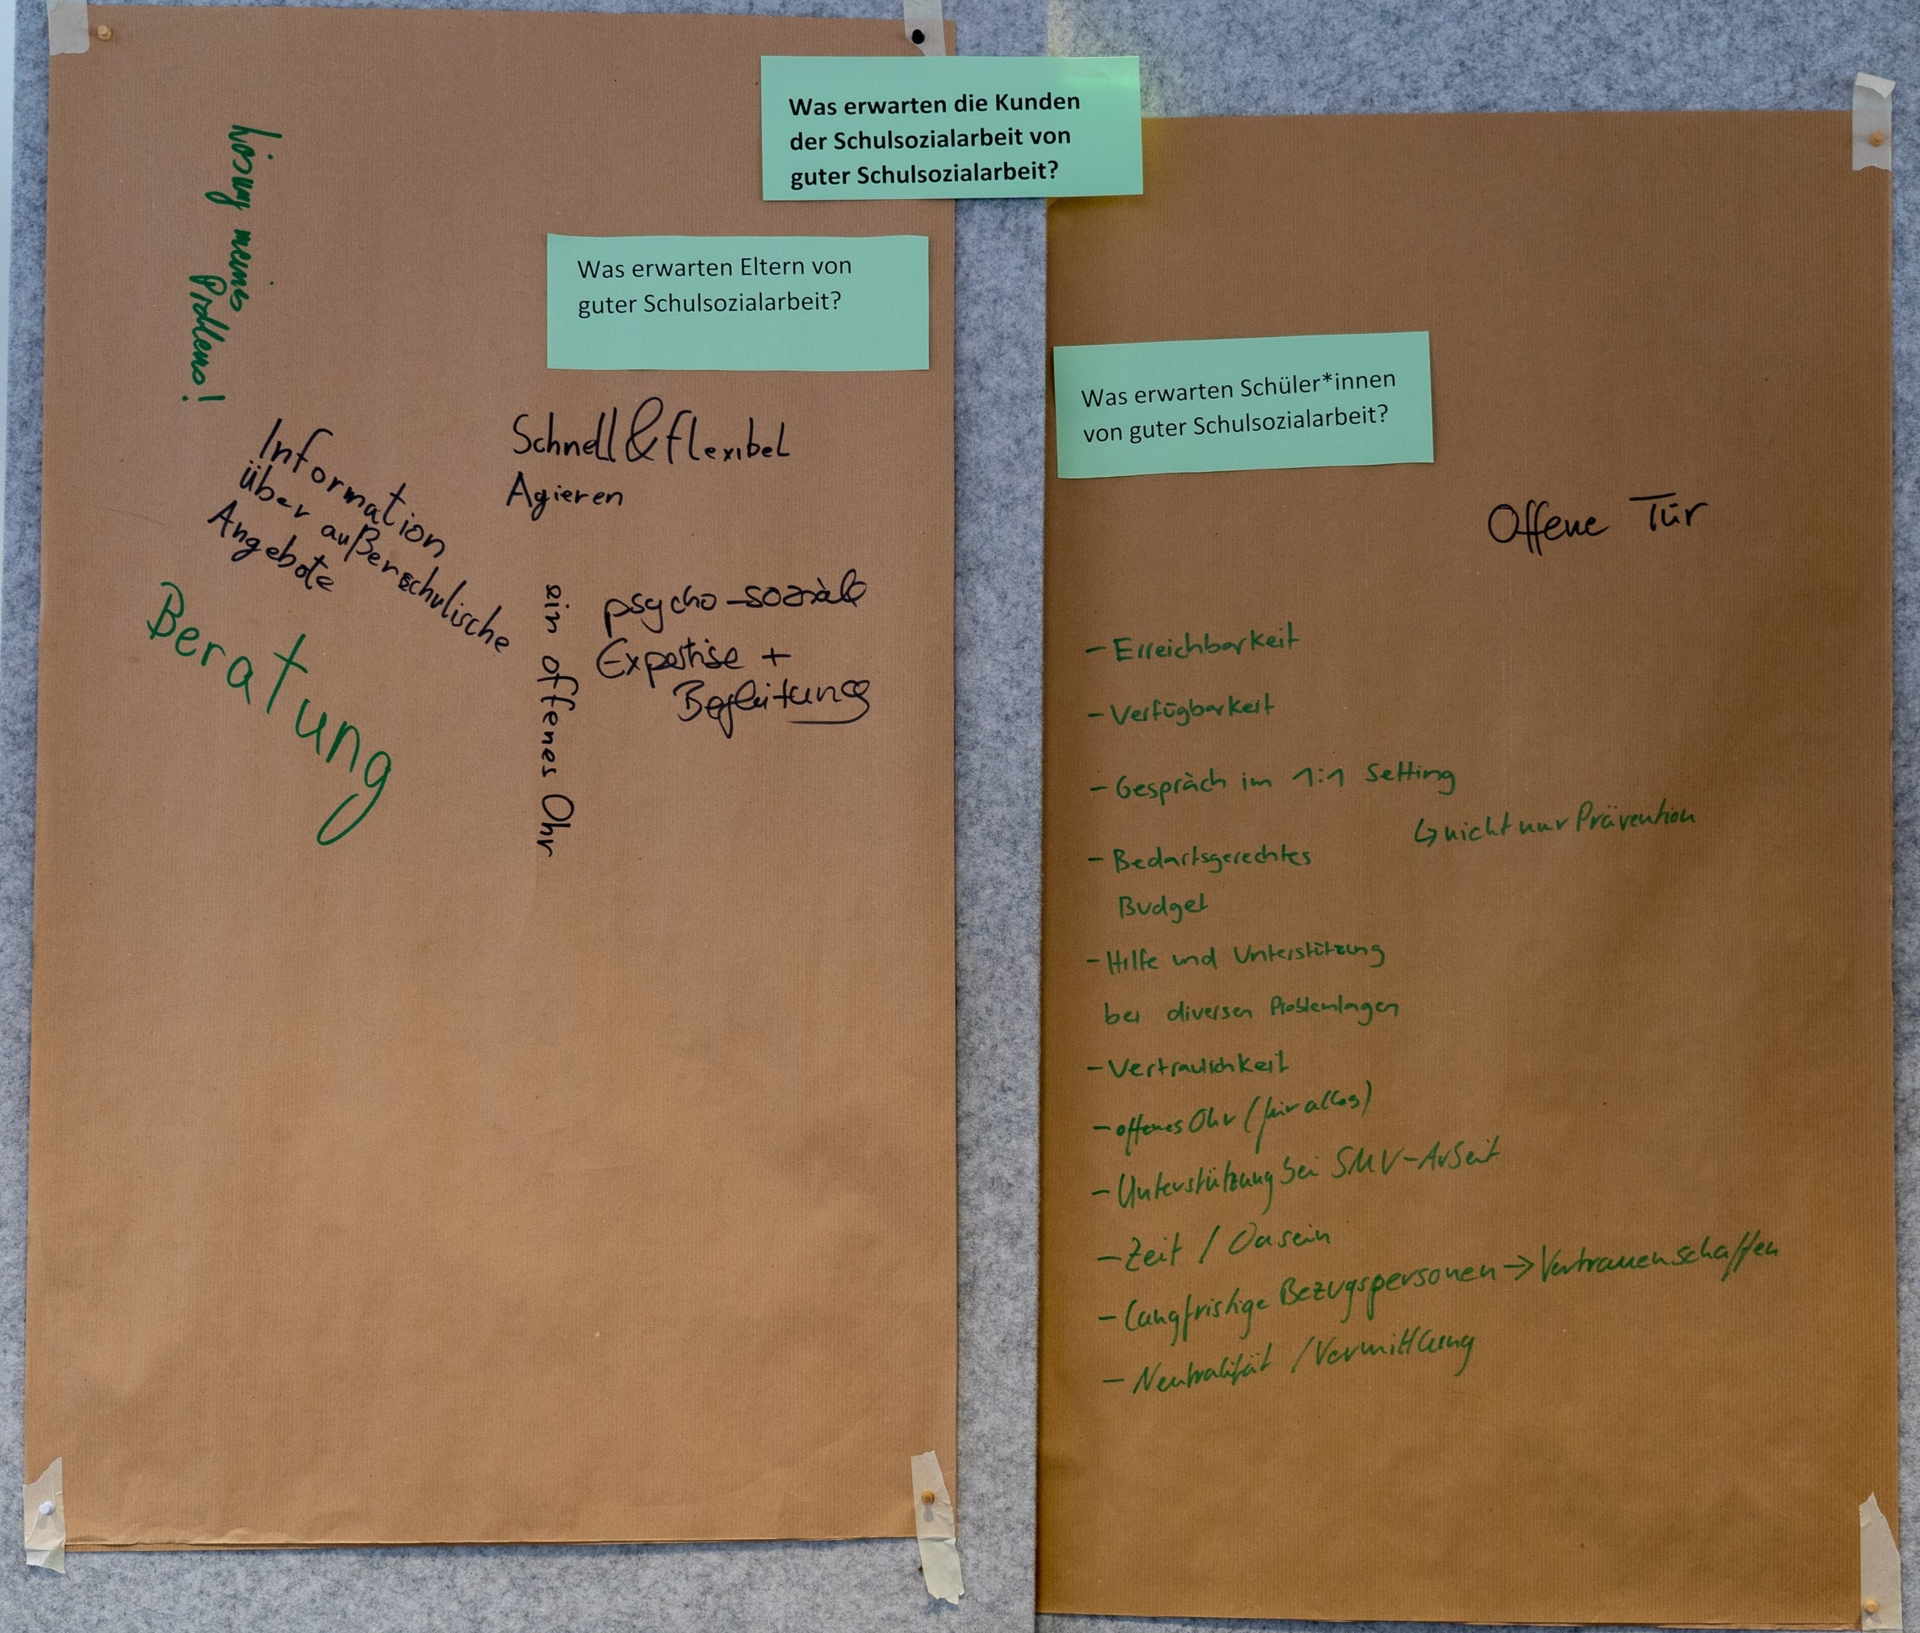 Was erwarten die Kunden
der Schulsozialarbeit von
guter Schulsozialarbeit?
Was erwarten Eltern von
guter Schulsozialarbeit?
Lösung meines
Problems!
Schnell & flexibel
Agieren
Information
über außerschulische
Angebote
Beratung
ein offenes Ohr
psycho-soziale
Expertise +
Begleitung
Was erwarten Schüler*innen
von guter Schulsozialarbeit?
Offene Tür
- Erreichbarkeit
- Verfügbarkeit
- Gespräch im 1:1 Setting
↳ nicht nur Prävention
- Bedarfsgerechtes
Budget
- Hilfe und Unterstützung
bei diversen Problemlagen
- Vertraulichkeit
- offenes Ohr (für alles)
- Unterstützung bei SMV-Arbeit
- Zeit / Dasein
- langfristige Bezugspersonen → Vertrauen schaffen
- Neutralität / Vermittlung